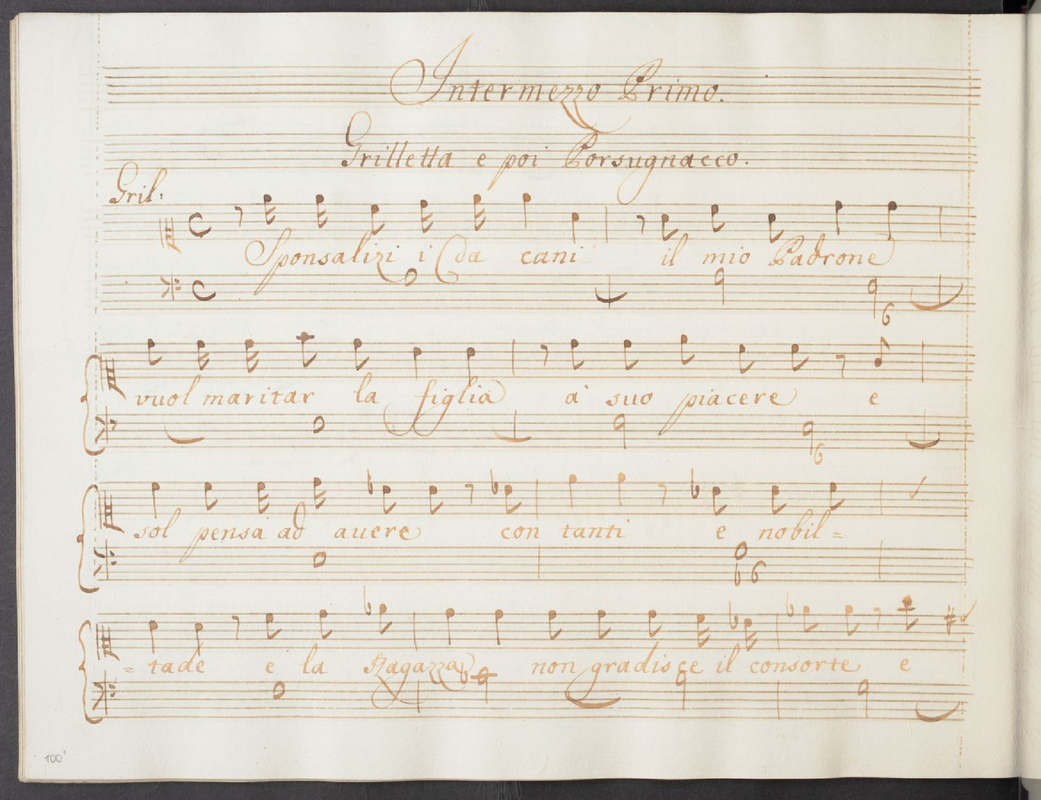 Intermezzo Primo.
Grilletta e poi Porsugnacco.
Gril.
Sponsalizi i da cani il mio Padrone
6
vuol maritar la figlia à suo piacere e
6
sol pensa ad auere con tanti e nobil=
b6
=tade e la Ragazza non gradisce il consorte e
100v